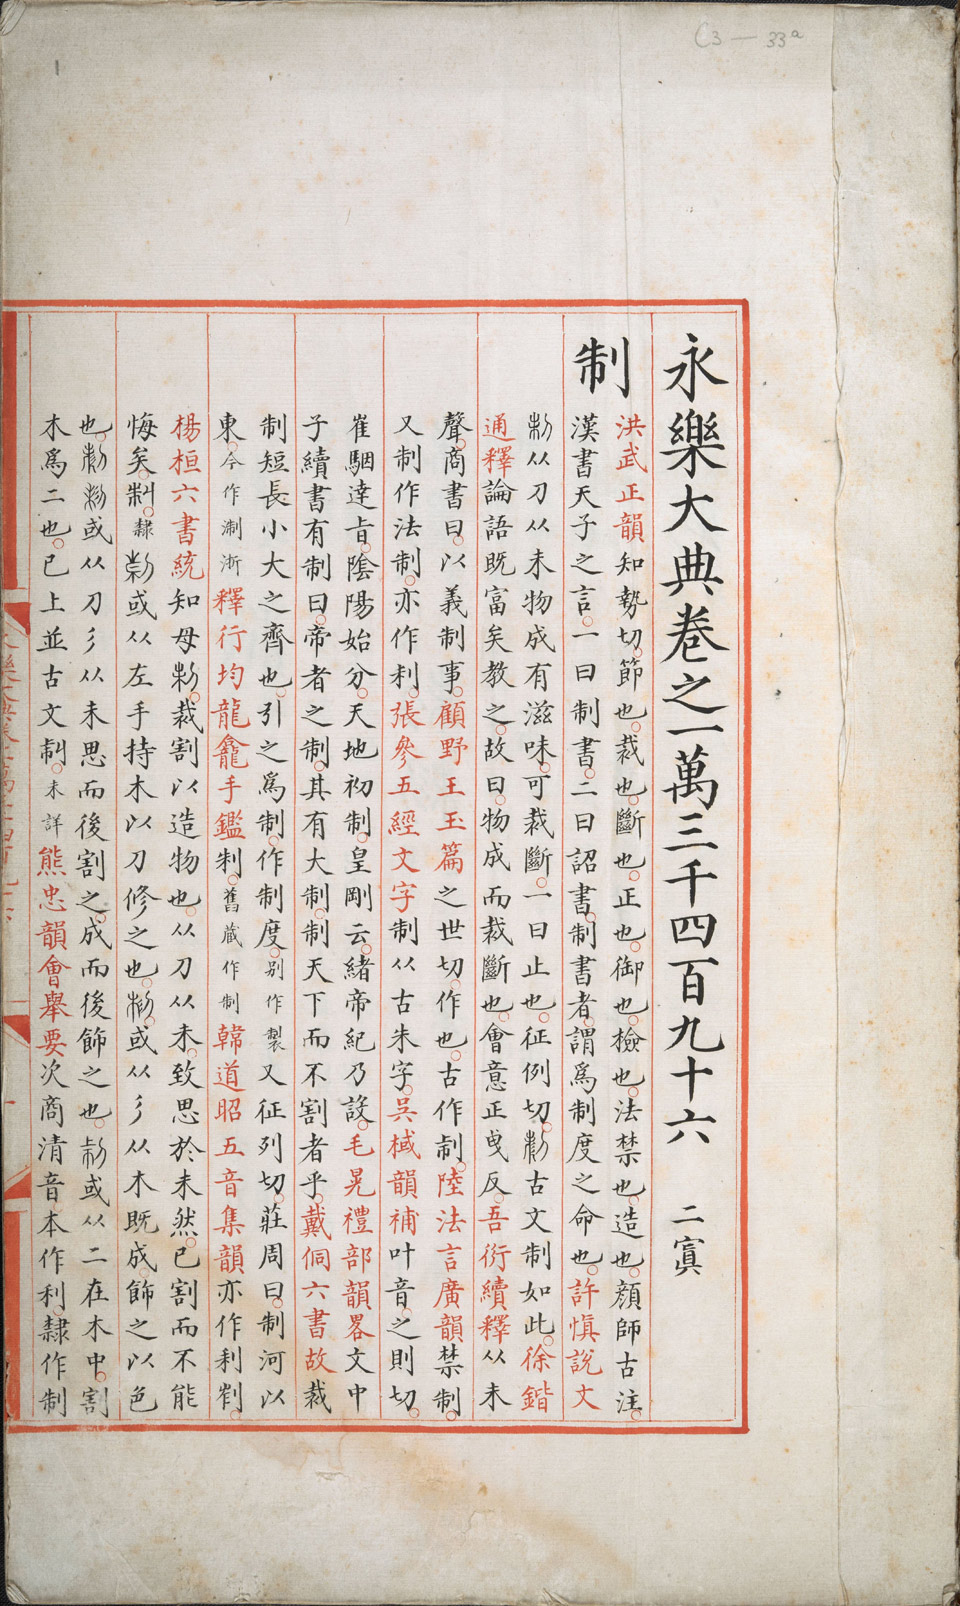 C3 — 33a
1
永樂大典卷之一萬三千四百九十六 二寘
制
洪武正韻知勢切。節也。裁也。斷也。正也。御也。檢也。法禁也。造也。顏師古注。
漢書天子之言。一曰制書。二曰詔書。制書者。謂爲制度之命也。許愼說文
从刀从未物成有滋味。可裁斷。一曰止也。征例切。古文制如此。徐鍇
通釋論語旣富矣教之。故曰。物成而裁斷也。會意正曳反。吾衍續釋从未
聲。商書曰。以義制事。顧野王玉篇之世切。作也。古作制。陸法言廣韻禁制。
又制作法制。亦作利。張參五經文字制从古朱字。吳棫韻補叶音。之則切。
崔駰達旨。陰陽始分。天地初制。皇剛云緒。帝紀乃設。毛晃禮部韻畧文中
子續書有制曰。帝者之制。其有大制。制天下而不割者乎。戴侗六書故裁
制短長小大之齊也。引之爲制。作制度。別作製又征列切。莊周曰。制河以
東。今作淛浙釋行均龍龕手鑑制。舊藏作制韓道昭五音集韻亦作利
楊桓六書統知母。裁割以造物也。从刀从未。致思於未然。已割而不能
悔矣。隸或从左手持木以刀修之也。或从彡从木旣成。飾之以色
也。或从刀彡从未思而後割之。成而後飾之也。或从二在木中。割
木爲二也。已上並古文制。未詳熊忠韻會舉要次商清音本作利。隸作制